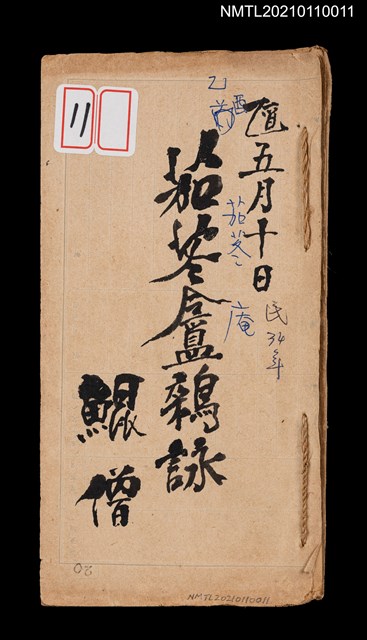 NMTL20210110011
11
五月十日
乙酉
茄苳
庵
民34年
茄苳盦鶏詠
鯤僧
20
NMTL20210110011